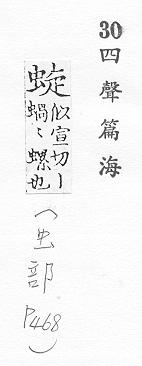 30 四聲篇海
蜁
似宣切丨
蝸〻螺也
(虫部 P468)